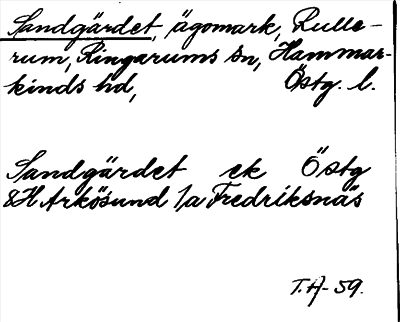 Sandgärdet, ägomark, Rulle-
rum, Ringarums sn, Hammar-
kinds hd, Östg. l.
Sandgärdet ek Östg
8H Arkösund 1a Fredriksnäs
T.H-59.